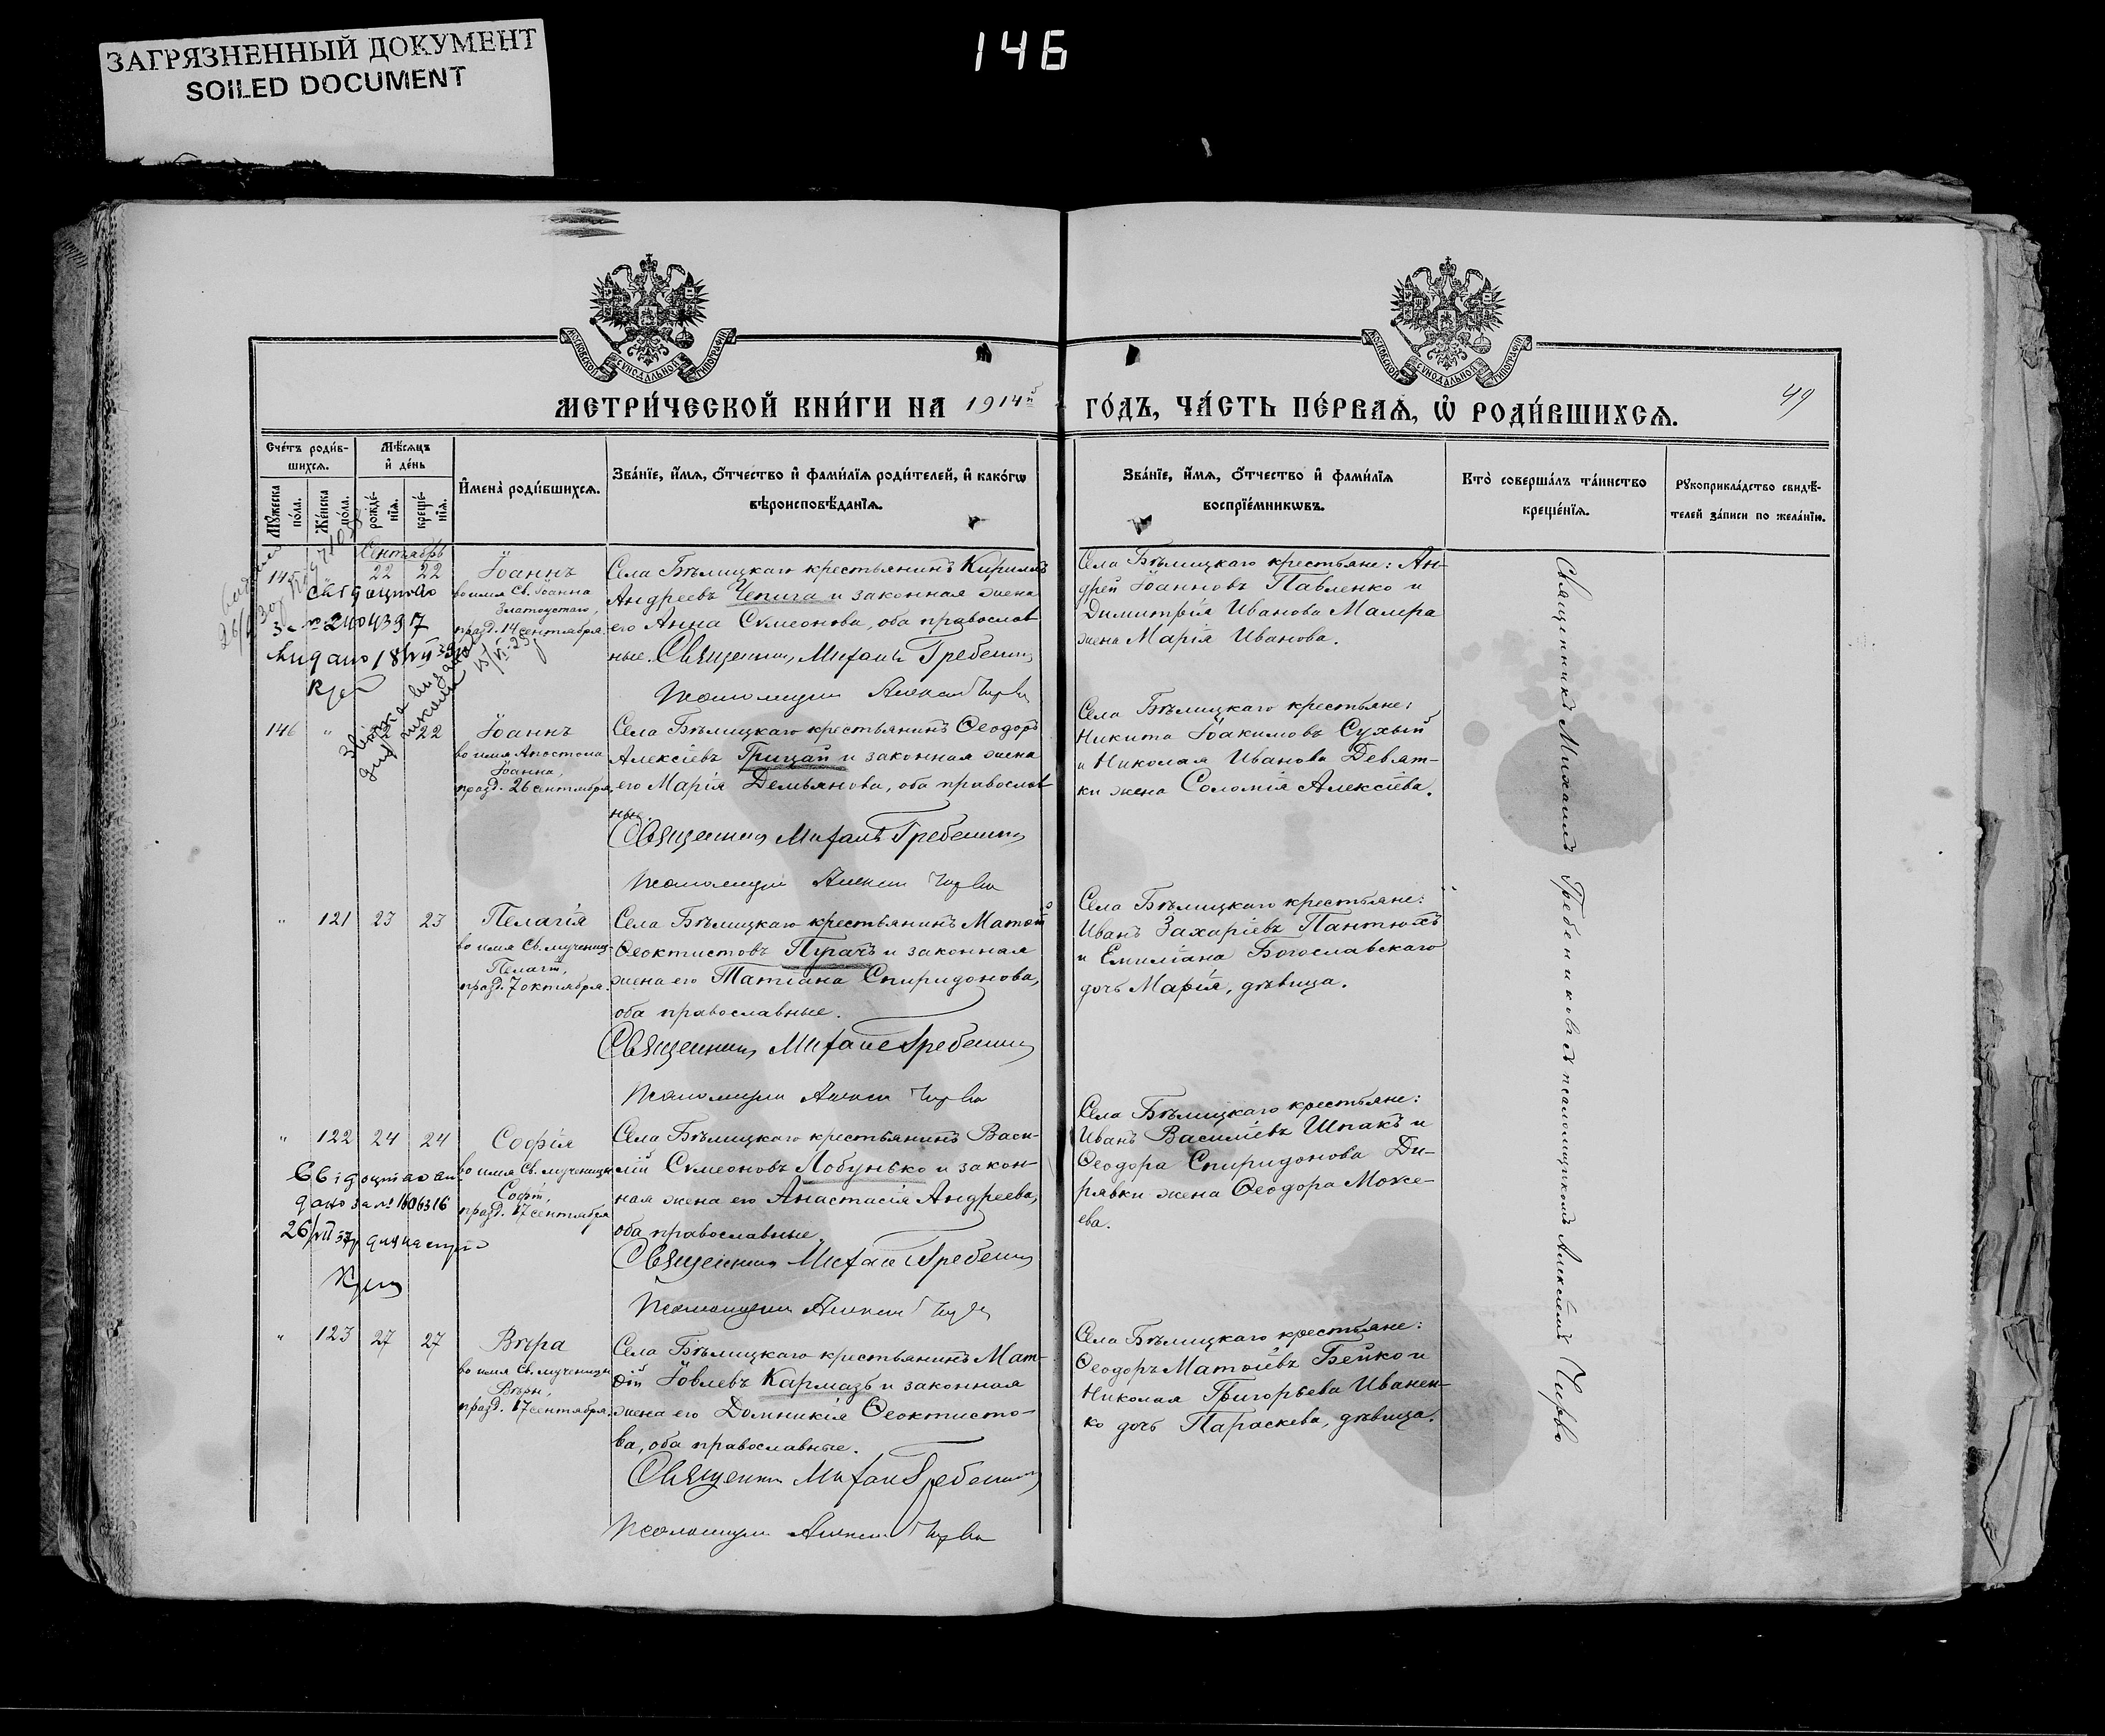 ЗАГРЯЗНЕННЫЙ ДОКУМЕНТ
SOILED DOCUMENT
146
МОСКОВСКОЙ СУНОДАЛЬНОЙ ТИПОГРАФІИ
МОСКОВСКОЙ СУНОДАЛЬНОЙ ТИПОГРАФІИ
МЕТРИ́ЧЕСКОЙ КНИ́ГИ НА 1914й ГО́ДЪ, ЧА́СТЬ ПЕ́РВАѦ, Ѽ РОДИ́ВШИХСѦ.
49
Сче́тъ роди́в-
шихсѧ.
Мѣ́сѧцъ
и҆ де́нь
Мꙋ́жеска
по́ла.
Же́нска
по́ла.
рожде́-
нїѧ.
креще́-
нїѧ.
И҆мена̀ роди́вшихсѧ.
Зва́нїе, и҆́мѧ, ѻ҆́тчество и҆ фами́лїѧ роди́телей, и҆ како́гѡ
вѣроисповѣ́данїѧ.
Зва́нїе, и҆́мѧ, ѻ҆́тчество и҆ фами́лїѧ
воспрїе́мникѡвъ.
Кто̀ соверша́лъ та́инство
креще́нїѧ.
Рꙋкоприкла́дство свидѣ́-
телей за́писи по жела́нїю.
Сентябрь
145 22 22
Іоаннъ
во имя Св. Іоанна
Златоустаго,
празд. 14 сентября.
Села Бѣлицкаго крестьянинъ Кириллъ
Андреевъ Чепига и законная жена
его Анна Сѵмеонова, оба православ
ные. Священникъ Михаилъ Гребенник
Псаломщик Алексій Чирва
Села Бѣлицкаго крестьяне: Ан-
дрей Іоанновъ Павленко и
Димитрія Иванова Маляра
жена Марія Иванова.
за № 2404397
видано 18
146 " 22
Іоаннъ
во имя Апостола
Іоанна,
празд. 26 сентября.
Села Бѣлицкаго крестьянинъ Ѳеодоръ
Алексіевъ Грицай и законная жена
его Марія Демьянова, оба православ
ные.
Священник Михаилъ Гребенник
Псаломщик Алексій Чирва
Села Бѣлицкаго крестьяне:
Никита Іоакимовъ Сухый
и Николая Иванова Девят-
ки жена Соломія Алексіева.
" 121 23 23
Пелагія
во имя Св. мучениц.
Пелагіи,
празд. 7 октября.
Села Бѣлицкаго крестьянинъ Матѳій
Ѳеоктистовъ Пугачъ и законная
жена его Татіана Спиридонова,
оба православные.
Священник Михаил Гребенник
Псаломщик Алексій Чирва
Села Бѣлицкаго крестьяне:
Иванъ Захаріевъ Пантюхъ
и Емиліана Богославскаго
дочь Марія, дѣвица.
" 122 24 24
Софія
во имя Св. мученицы
Софіи,
празд. 17 сентября
Села Бѣлицкаго крестьянинъ Васи-
лій Сѵмеоновъ Лобунько и закон-
ная жена его Анастасія Андреева,
оба православные.
Священник Михаил Гребенник
Псаломщик Алексій Чирва
Села Бѣлицкаго крестьяне:
Иванъ Василіевъ Шпакъ и
Ѳеодора Спиридонова Ди-
рявки жена Ѳеодора Моке-
ева.
Свідоцтво ви-
дано за № 1606316
26/VII 37р
" 123 27 27
Вѣра
во имя Св. мученицы
Вѣры,
празд. 17 сентября.
Села Бѣлицкаго крестьянинъ Мат-
ѳій Іовлевъ Кармазь и законная
жена его Домникія Ѳеоктисто-
ва, оба православные.
Священник Михаил Гребенник
Псаломщик Алексій Чирва
Села Бѣлицкаго крестьяне:
Ѳеодоръ Матѳіевъ Бейко и
Николая Григорьева Иванен-
ко дочь Параскева, дѣвица.
Священникъ Михаилъ Гребенниковъ съ псаломщикомъ Алексіемъ Чирво